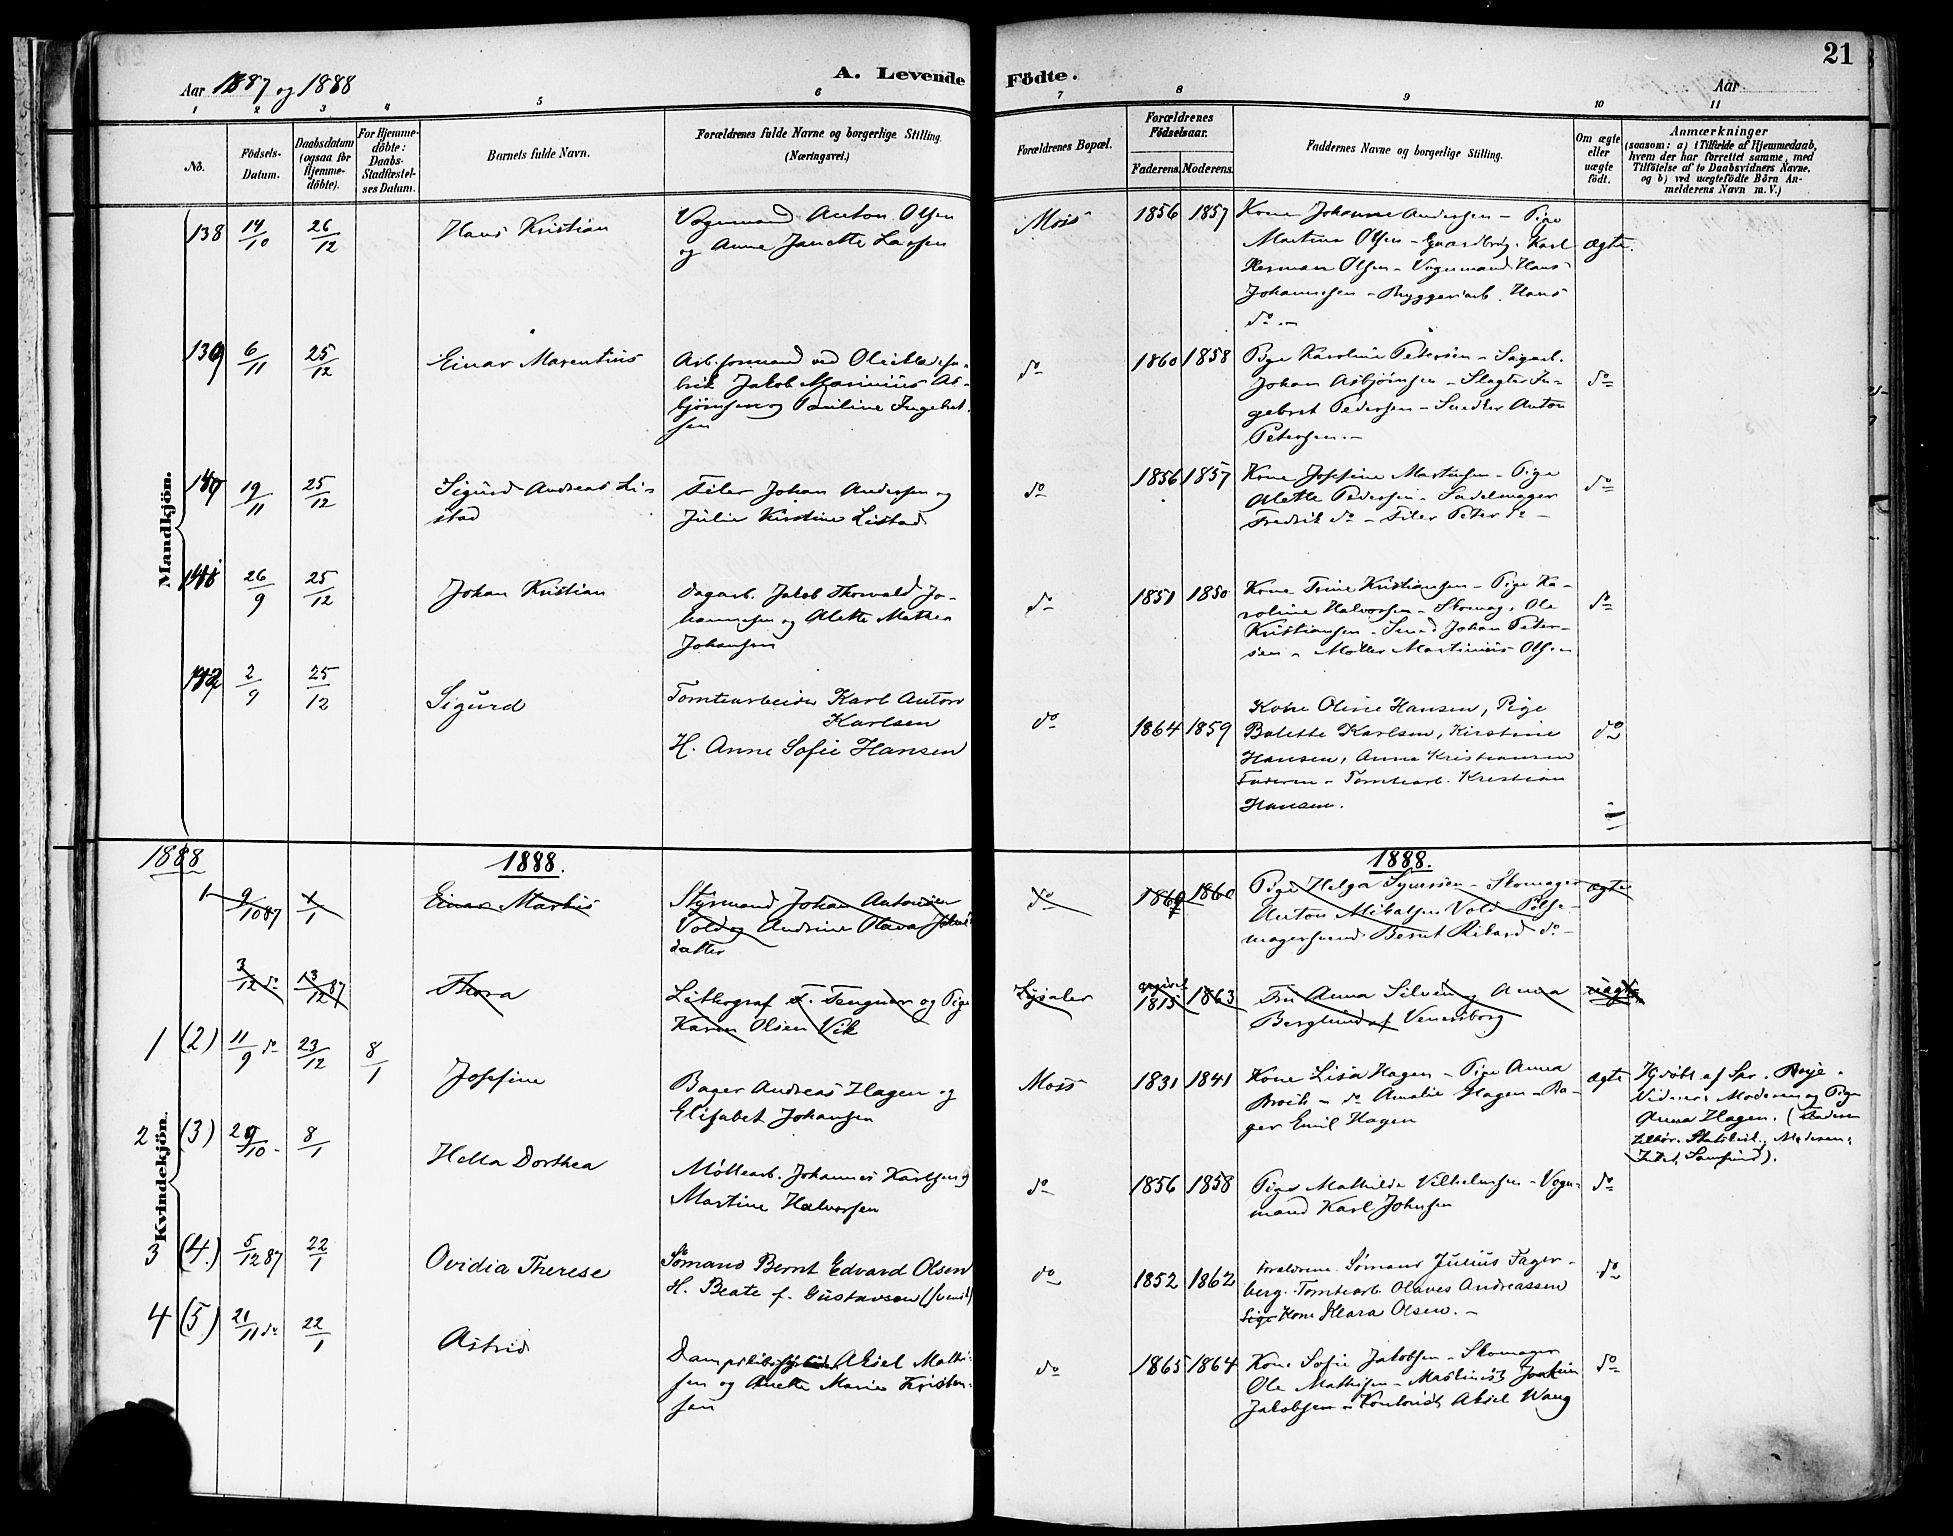 21
Aar 1887 og 1888
A. Levende Födte.
Aar
1 2 3 4 5 6 7 8 9 10 11
No.
Födsels-Datum.
Daabsdatum (ogsaa for Hjemme-döbte).
For Hjemme-döbte: Daabs-Stadfæstelses Datum.
Barnets fulde Navn.
Forældrenes fulde Navne og borgerlige Stilling. (Næringsvei.)
Forældrenes Bopæl.
Forældrenes Födselsaar.
Faderens. Moderens.
Faddernes Navne og borgerlige Stilling.
Om ægte eller uægte födt.
Anmærkninger (saasom: a) i Tilfælde af Hjemmedaab, hvem der har forrettet samme, med Tilföielse af to Daabsvidners Navne, og b) ved uægtefödte Börn Anmelderens Navn m. V.)
Mandkjön.
138 14/10 26/12 Hans Kristian
Vognmand Anton Olsen
og Anne Janette Larsen
Moss 1856 1857
Kone Johanne Andersen - Pige
Martina Olsen - Gaardbrug. Karl
Herman Olsen - Vognmand Hans
Johannesen - Bryggeriarb. Hans
do -
ægte.
139 6/11 25/12 Einar Marentius
Arb.formand ved Oliekladefa-
brik Jakob Marinius As-
björnsen og Pauline Ingebret-
sen
do 1860 1858
Pige Karoline Petersen - Sagarb.
Johan Asbjörnsen - Slagter In-
gebret Pedersen - Snedker Anton
Petersen. -
do
140 19/11 25/12 Sigurd Andreas Li-
stad
Filer Johan Andersen og
Julie Kirstine Listad
do 1856 1857
Kone Josefine Martinsen - Pige
Alette Pedersen - Sadelmager
Fredrik do - Filer Peter do -
do
141 26/9 25/12 Johan Kristian
Dagarb. Jakob Thorvald Jo-
hannesen og Alette Mathea
Johansen
do 1851 1850
Kone Trine Kristiansen - Pige Ka-
roline Halvorsen - Skomag. Ole
Kristiansen - Smed Johan Peter-
sen - Møller Martinius Olsen
do
142 2/9 25/12 Sigurd
Tomtearbeider Karl Anton
Karlsen
H. Anne Sofie Hansen
do 1864 1859
Kone Oline Hansen, Pige
Bolette Karlsen, Kirstine
Hansen, Anna Kristiansen
Faderen - Tomtearb. Kristian
Hansen.
do
1888 1888. 1888.
1 9/10 87 1/1 Einar Martin
Styrmand Johan Antonsen
Vold og Andrine Olava
datter
do 1860 1860
Pige Helga Syversen - Skomager
Anton Mikalsen Vold - Pølse-
magersvend Bernt Rikard do -
ægte
3/12 do 13/12 87 Thora
Lithograf F. Tengner og Pige
Karen Olsen Vik
Lysaker 1815 1863
Fru Anna Silven og Anna
Berglund af Venersborg
uægte
Kvindekjön.
1 (2) 11/9 do 23/12 8/1 Josefine
Bager Andreas Hagen og
Elisabet Johansen
Moss 1831 1841
Kone Lisa Hagen - Pige Anna
Broch - do Amalie Hagen - Ba-
ger Emil Hagen
ægte
Hjdøbt af Spr.
Vidner: Moderen og Pige
Anna Hagen. (Faderen
tilhør. Statskirk., Moderen
Samfund).
2 (3) 29/10 - 8/1 Hella Dorthea
Møllearb. Johannes Karlsen og
Martine Halvorsen
do 1856 1858
Pige Mathilde Vilhelmsen - Vogn-
mand Karl Johnsen
do
3 (4.) 5/12 87 22/1 Ovidia Therese
Sömand Bernt Edvard Olsen
H. Beate f. Gustavson (svensk)
do 1852 1862
Forældrene. Sömand Julius Fager-
berg. Tomtearb. Olaves Andreassen
Pige Kone Klara Olsen. -
do
4 (5) 21/11 do 22/1 Astrid
Aksel Mathi-
sen og Anette Marie Kristen-
sen
do 1865 1864
Kone Sofie Jakobsen - Skomager
Ole Mathisen - Maskinist Joakim
Jakobsen - Kontorist Aksel Wang
do